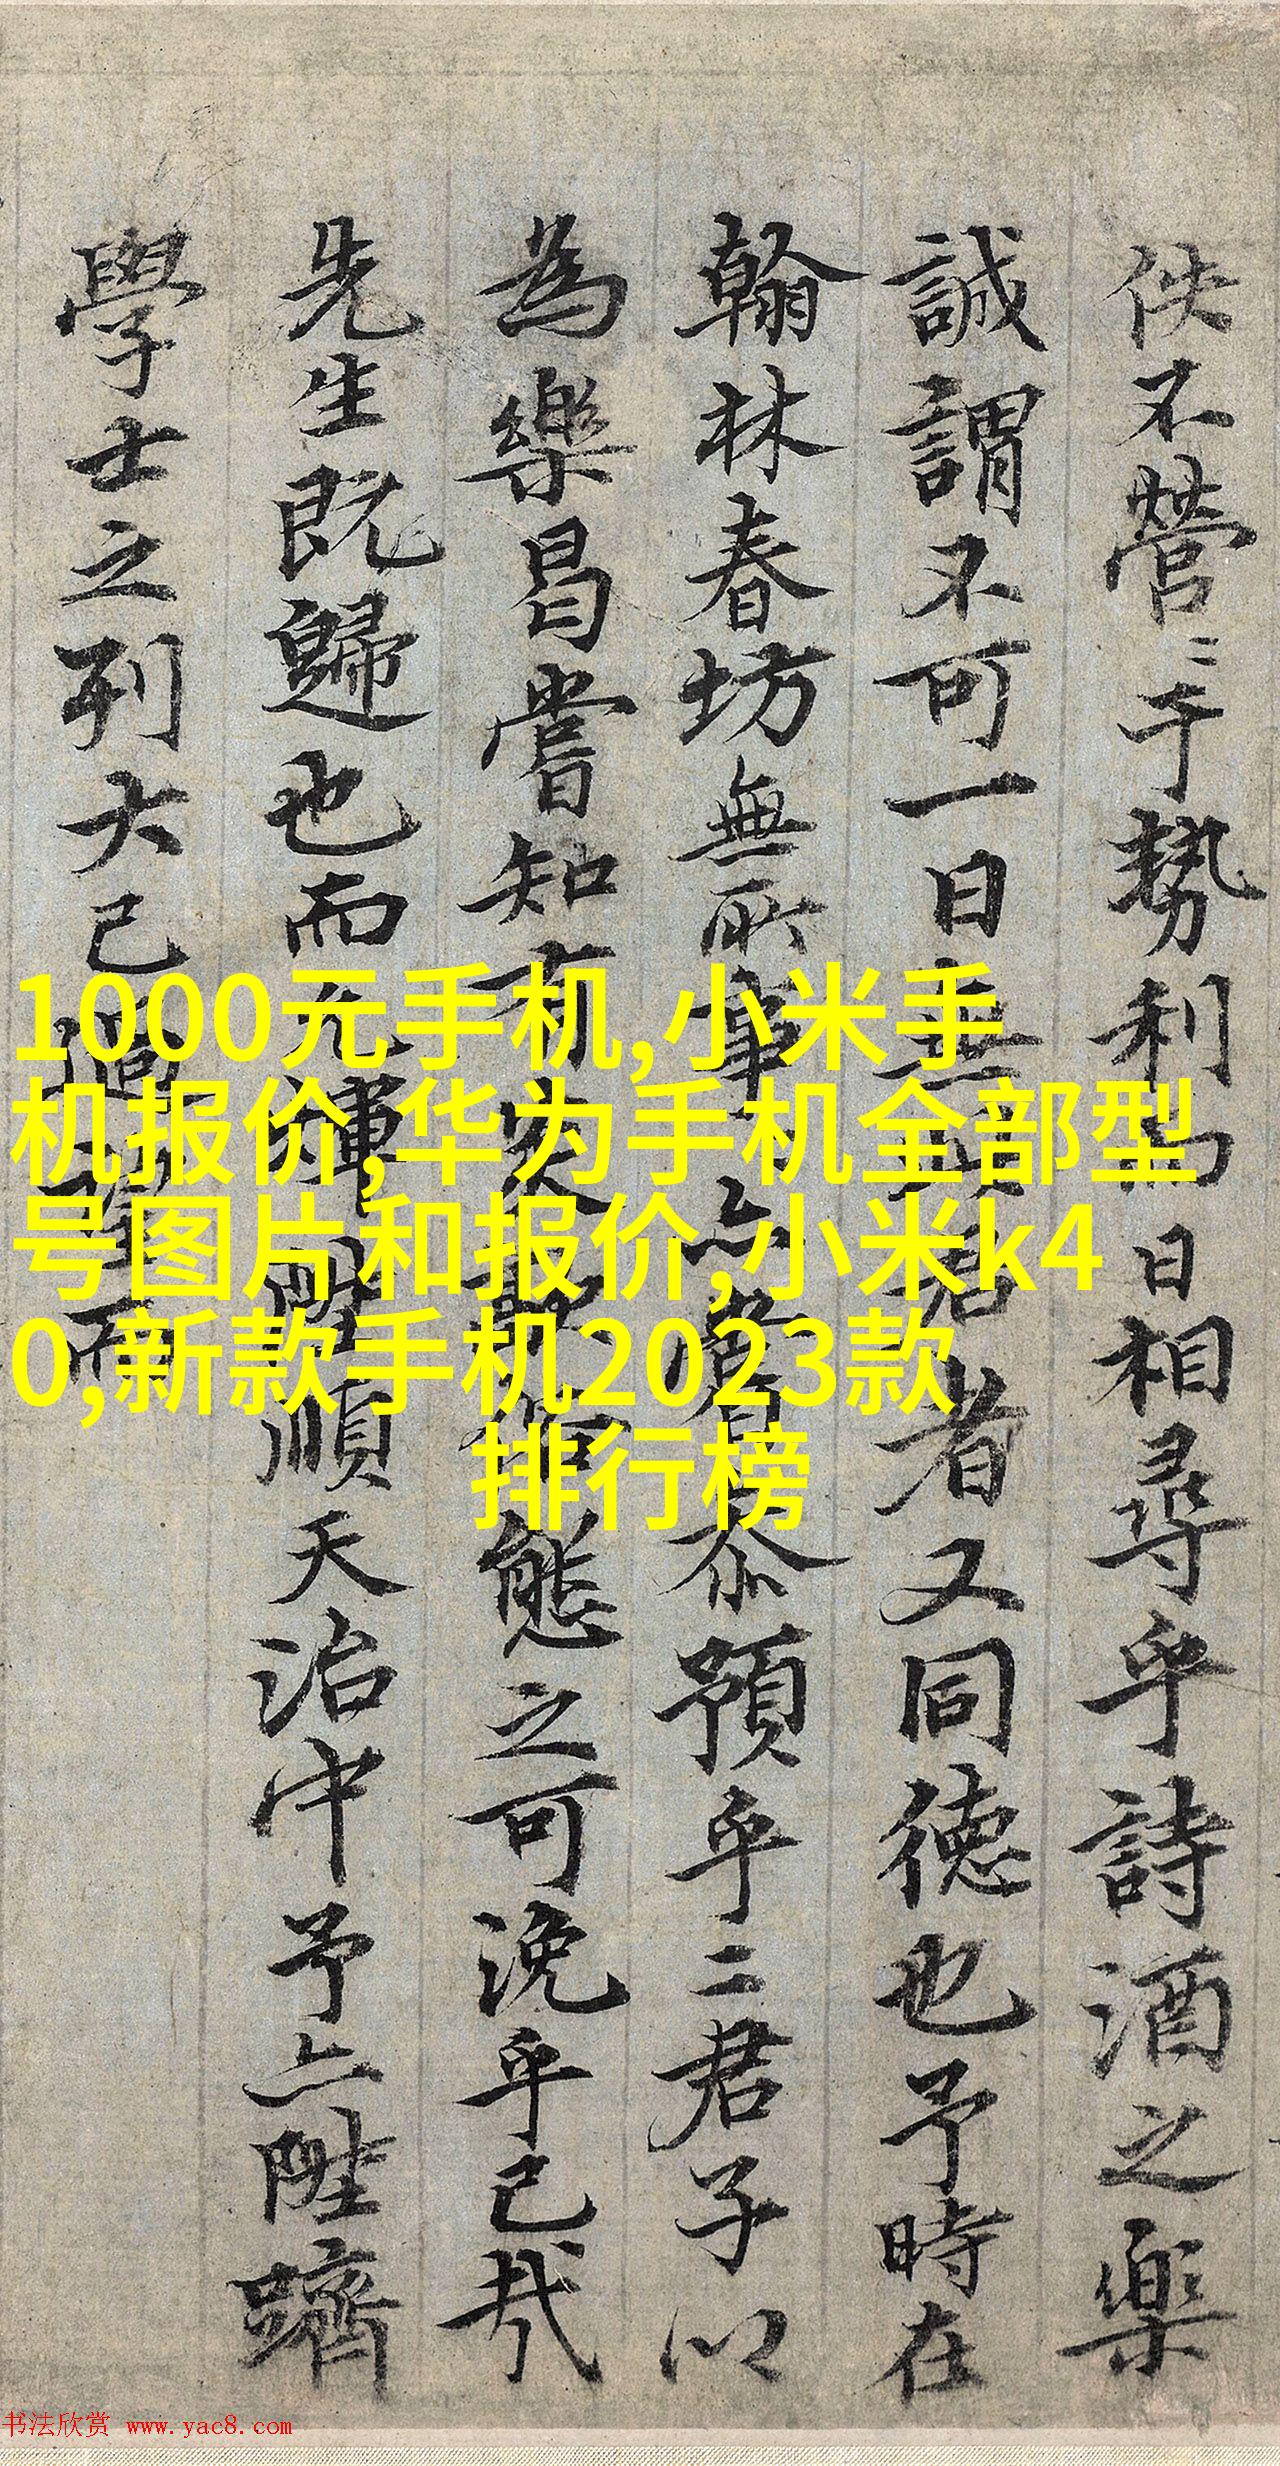 佚不營〻于勢利而日相尋乎詩酒之樂
誠謂不可一日無君者又同德也予時在
翰林春坊無所事亦嘗忝預乎二君子以
為樂曷嘗知有炎態之可浼乎已哉
先生既歸也而順天治中予亦陞躋
學士之列大已過望而
1000元手机,小米手
机报价,华为手机全部型
号图片和报价,小米k4
0,新款手机2023款
排行榜
书法欣赏 www.yac8.com